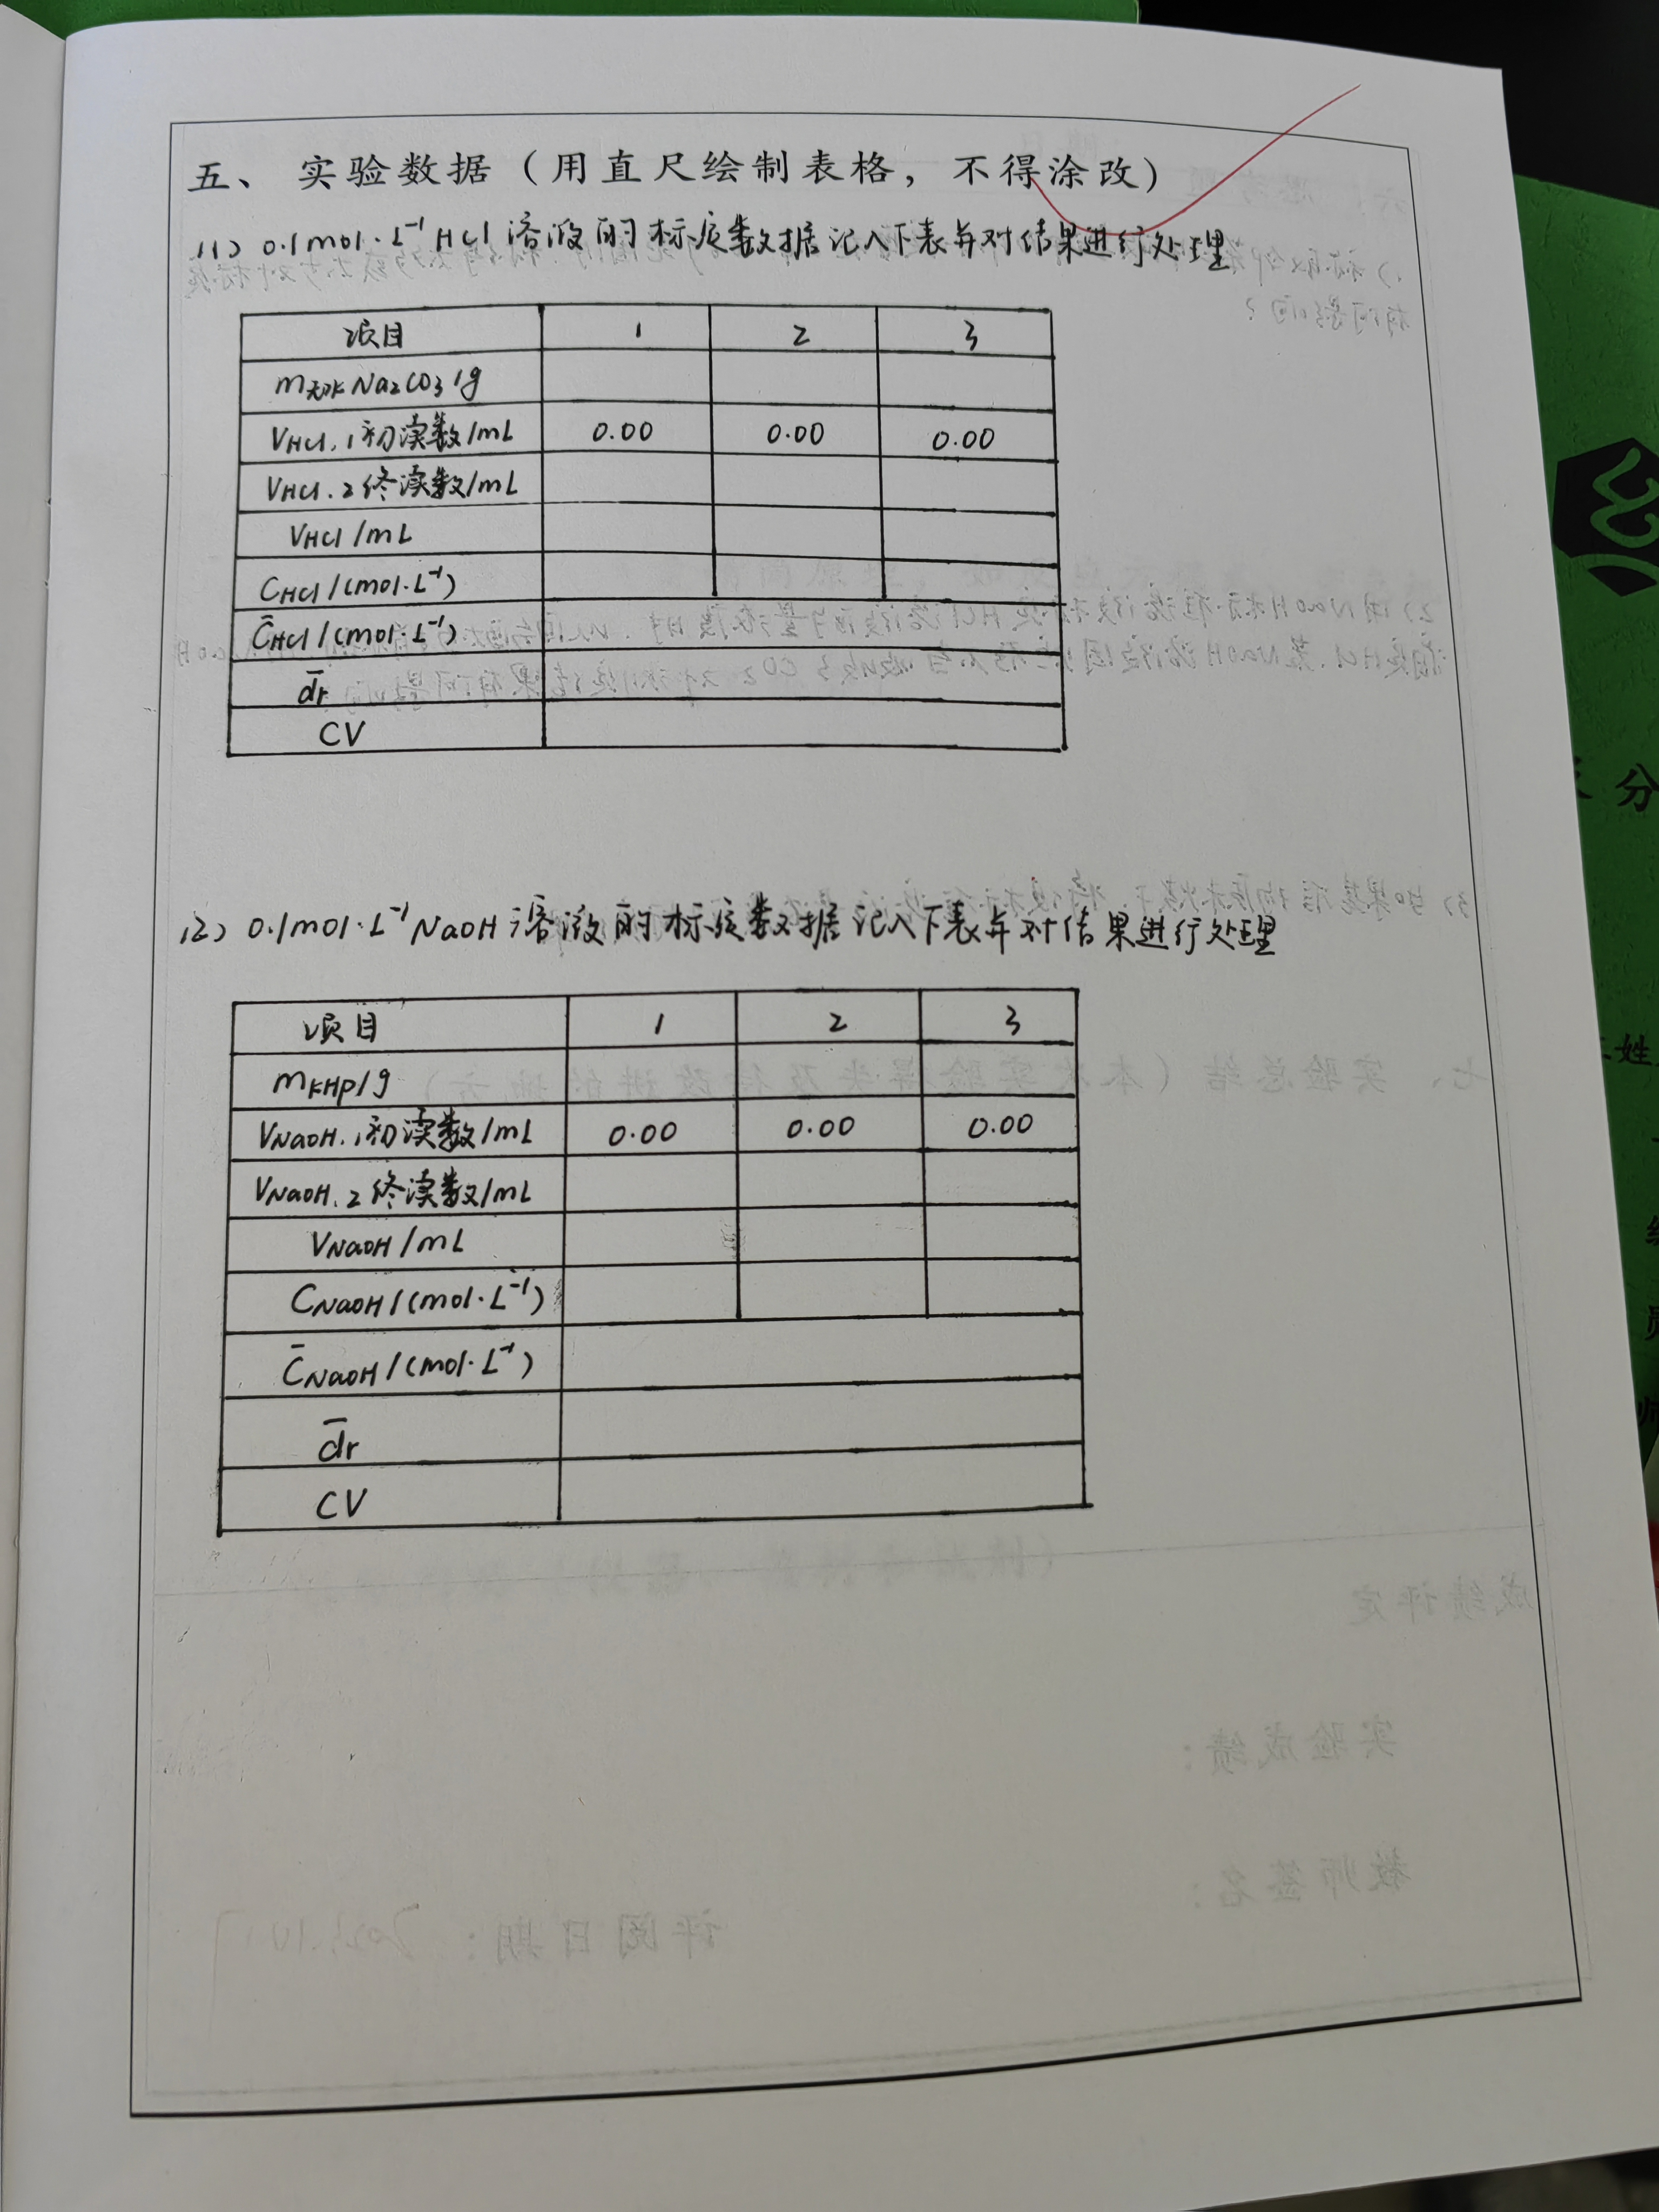 五、 实验数据（用直尺绘制表格，不得涂改）
(1) 0.1mol·L⁻¹ HCl 溶液的标定数据记入下表并对结果进行处理
项目 1 2 3
m无水Na₂CO₃/g
VHCl,1初读数/mL 0.00 0.00 0.00
VHCl,2终读数/mL
VHCl/mL
CHCl/(mol·L⁻¹)
C̄HCl/(mol·L⁻¹)
d̄r
CV
(2) 0.1mol·L⁻¹NaOH溶液的标定数据记入下表并对结果进行处理
项目 1 2 3
mKHP/g
VNaOH,1初读数/mL 0.00 0.00 0.00
VNaOH,2终读数/mL
VNaOH/mL
CNaOH/(mol·L⁻¹)
C̄NaOH/(mol·L⁻¹)
d̄r
CV
分
姓
七、 实验总结（本次实验得失及待改进的地方）
成绩评定
实验成绩：
教师签名：
评阅日期：